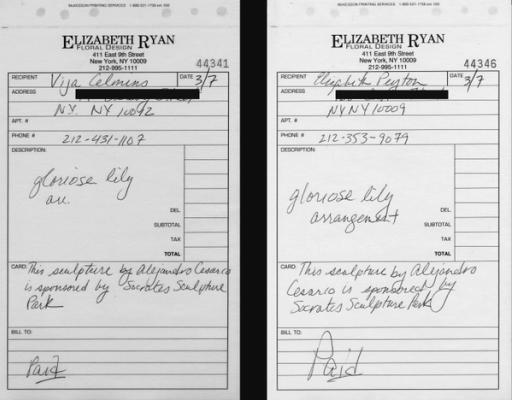 MCKESSON PRINTING SERVICES
ELIZABETH RYAN
FLORAL DESIGN
411 East 9th Street
New York, NY 10009
212-995-1111
44341
RECIPIENT Vija Celmins DATE 3/7
ADDRESS
NY. NY 10012
APT. #
PHONE # 212-431-1107
DESCRIPTION:
gloriose lily
arr.
DEL.
SUBTOTAL
TAX
TOTAL
CARD: This sculpture by Alejandro Cesarco
is sponsored by Socrates Sculpture
Park
BILL TO:
Paid
MCKESSON PRINTING SERVICES
ELIZABETH RYAN
FLORAL DESIGN
411 East 9th Street
New York, NY 10009
212-995-1111
44346
RECIPIENT Elizabeth Peyton DATE 3/7
ADDRESS
NY NY 10009
APT. #
PHONE # 212-353-9079
DESCRIPTION:
gloriose lily
arrangement
DEL.
SUBTOTAL
TAX
TOTAL
CARD: This sculpture by Alejandro
Cesarco is sponsored by
Socrates Sculpture Park
BILL TO:
Paid